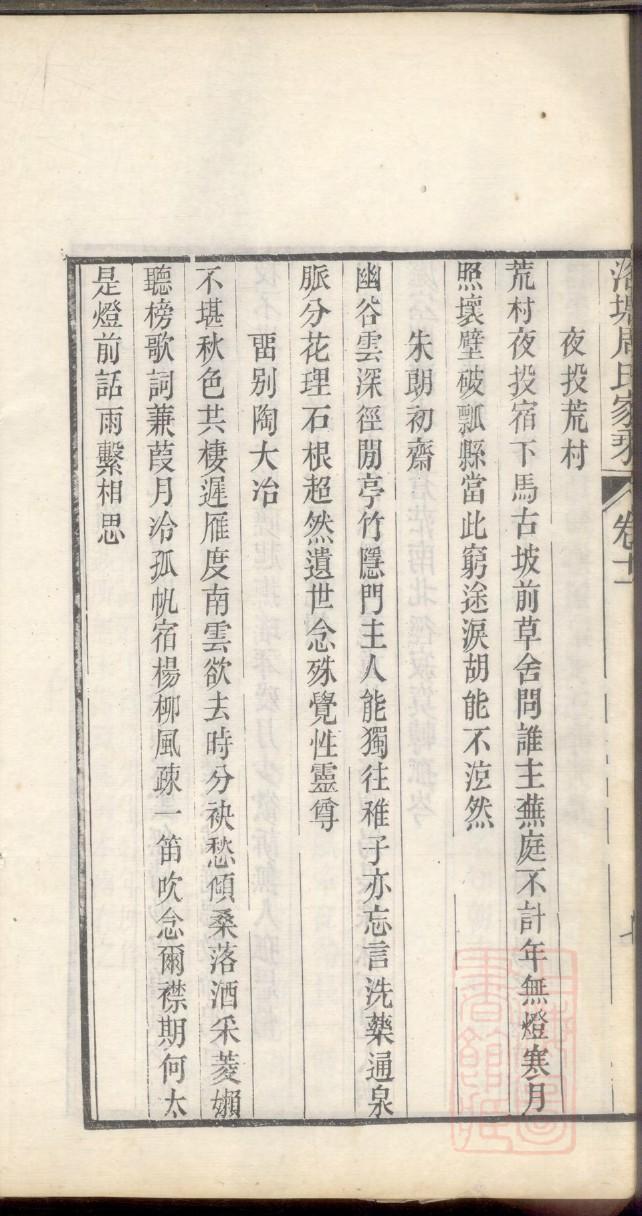 周氏家 卷十
夜投荒村
荒村夜投宿下馬古坡前草舍問誰主蕪庭不計年無燈寒月
照壞壁破瓢縣當此窮途淚胡能不泫然
朱朗初齋
幽谷雲深徑閒亭竹隱門主人能獨往稚子亦忘言洗藥通泉
脈分花理石根超然遺世念殊覺性靈尊
畱别陶大冶
不堪秋色共棲遲雁度南雲欲去時分袂愁傾桑落酒采菱嬾
聽榜歌詞蒹葭月冷孤帆宿楊柳風疎一笛吹念爾襟期何太
是燈前話雨繫相思